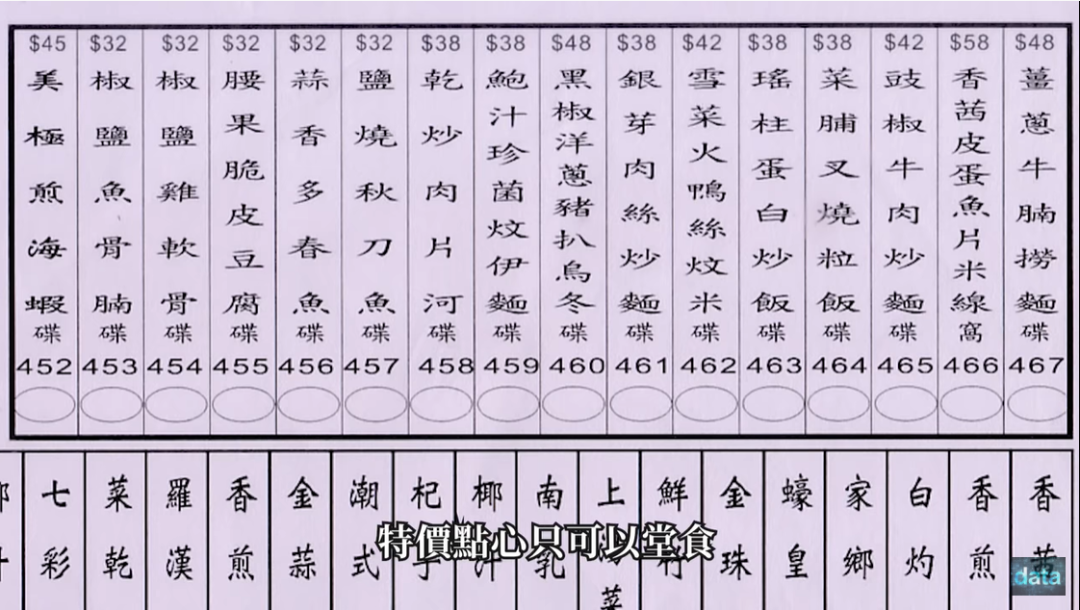 $48 薑蔥牛腩撈麵 碟 467
$58 香茜皮蛋魚片米線 窩 466
$42 豉椒牛肉炒麵 碟 465
$38 菜脯叉燒粒飯 碟 464
$38 瑤柱蛋白炒飯 碟 463
$42 雪菜火鴨絲炆米 碟 462
$38 銀芽肉絲炒麵 碟 461
$48 黑椒洋蔥豬扒烏冬 碟 460
$38 鮑汁珍菌炆伊麵 碟 459
$38 乾炒肉片河 碟 458
$32 鹽燒秋刀魚 碟 457
$32 蒜香多春魚 碟 456
$32 腰果脆皮豆腐 碟 455
$32 椒鹽雞軟骨 碟 454
$32 椒鹽魚骨腩 碟 453
$45 美極煎海蝦 碟 452
香茜
香煎
白灼
家鄉
蠔皇
金珠
鮮
上
南乳
椰汁
杞子
潮式
金蒜
香煎
羅漢
菜乾
七彩
特價點心只可以堂食
data